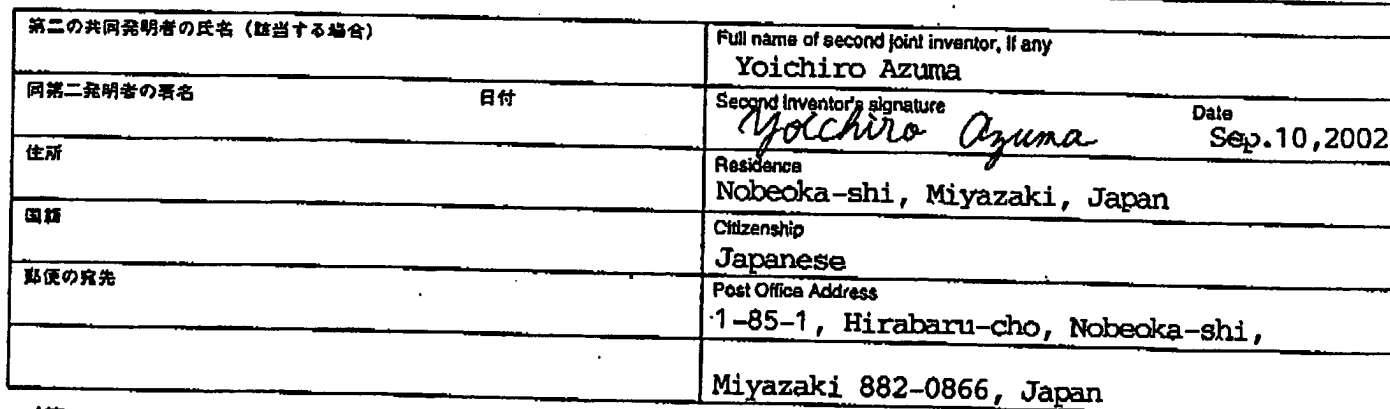 第二の共同発明者の氏名（該当する場合）
Full name of second joint inventor, if any
Yoichiro Azuma
同第二発明者の署名 日付
Second Inventor's signature Date
Yoichiro Azuma Sep.10,2002
住所
Residence
Nobeoka-shi, Miyazaki, Japan
国籍
Citizenship
Japanese
郵便の宛先
Post Office Address
1-85-1, Hirabaru-cho, Nobeoka-shi,
Miyazaki 882-0866, Japan